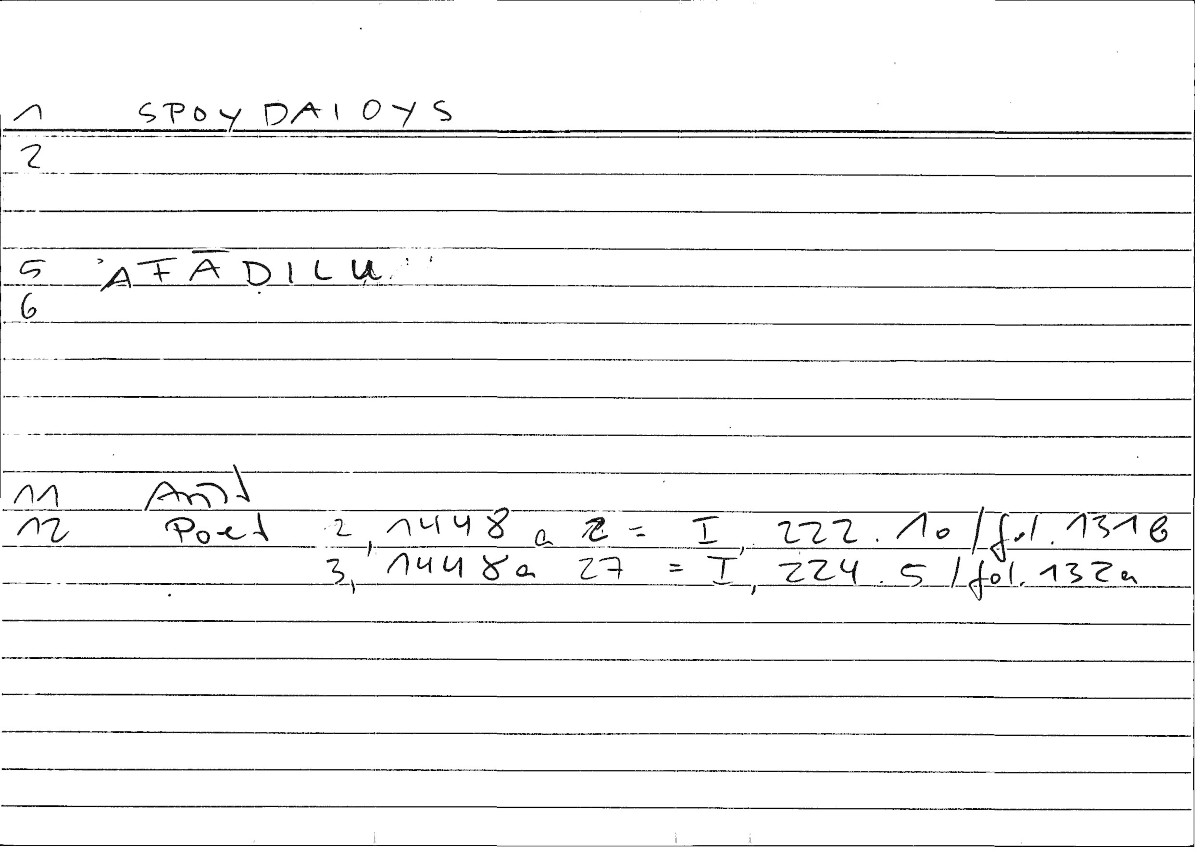 1 SPOYDAIOYS
2
5 'AFĀḌILU
6
11 Arist
12 Poet 2, 1448 a 2 = I, 222.10 / fol. 131b
3, 1448a 27 = I, 224.5 / fol. 132a